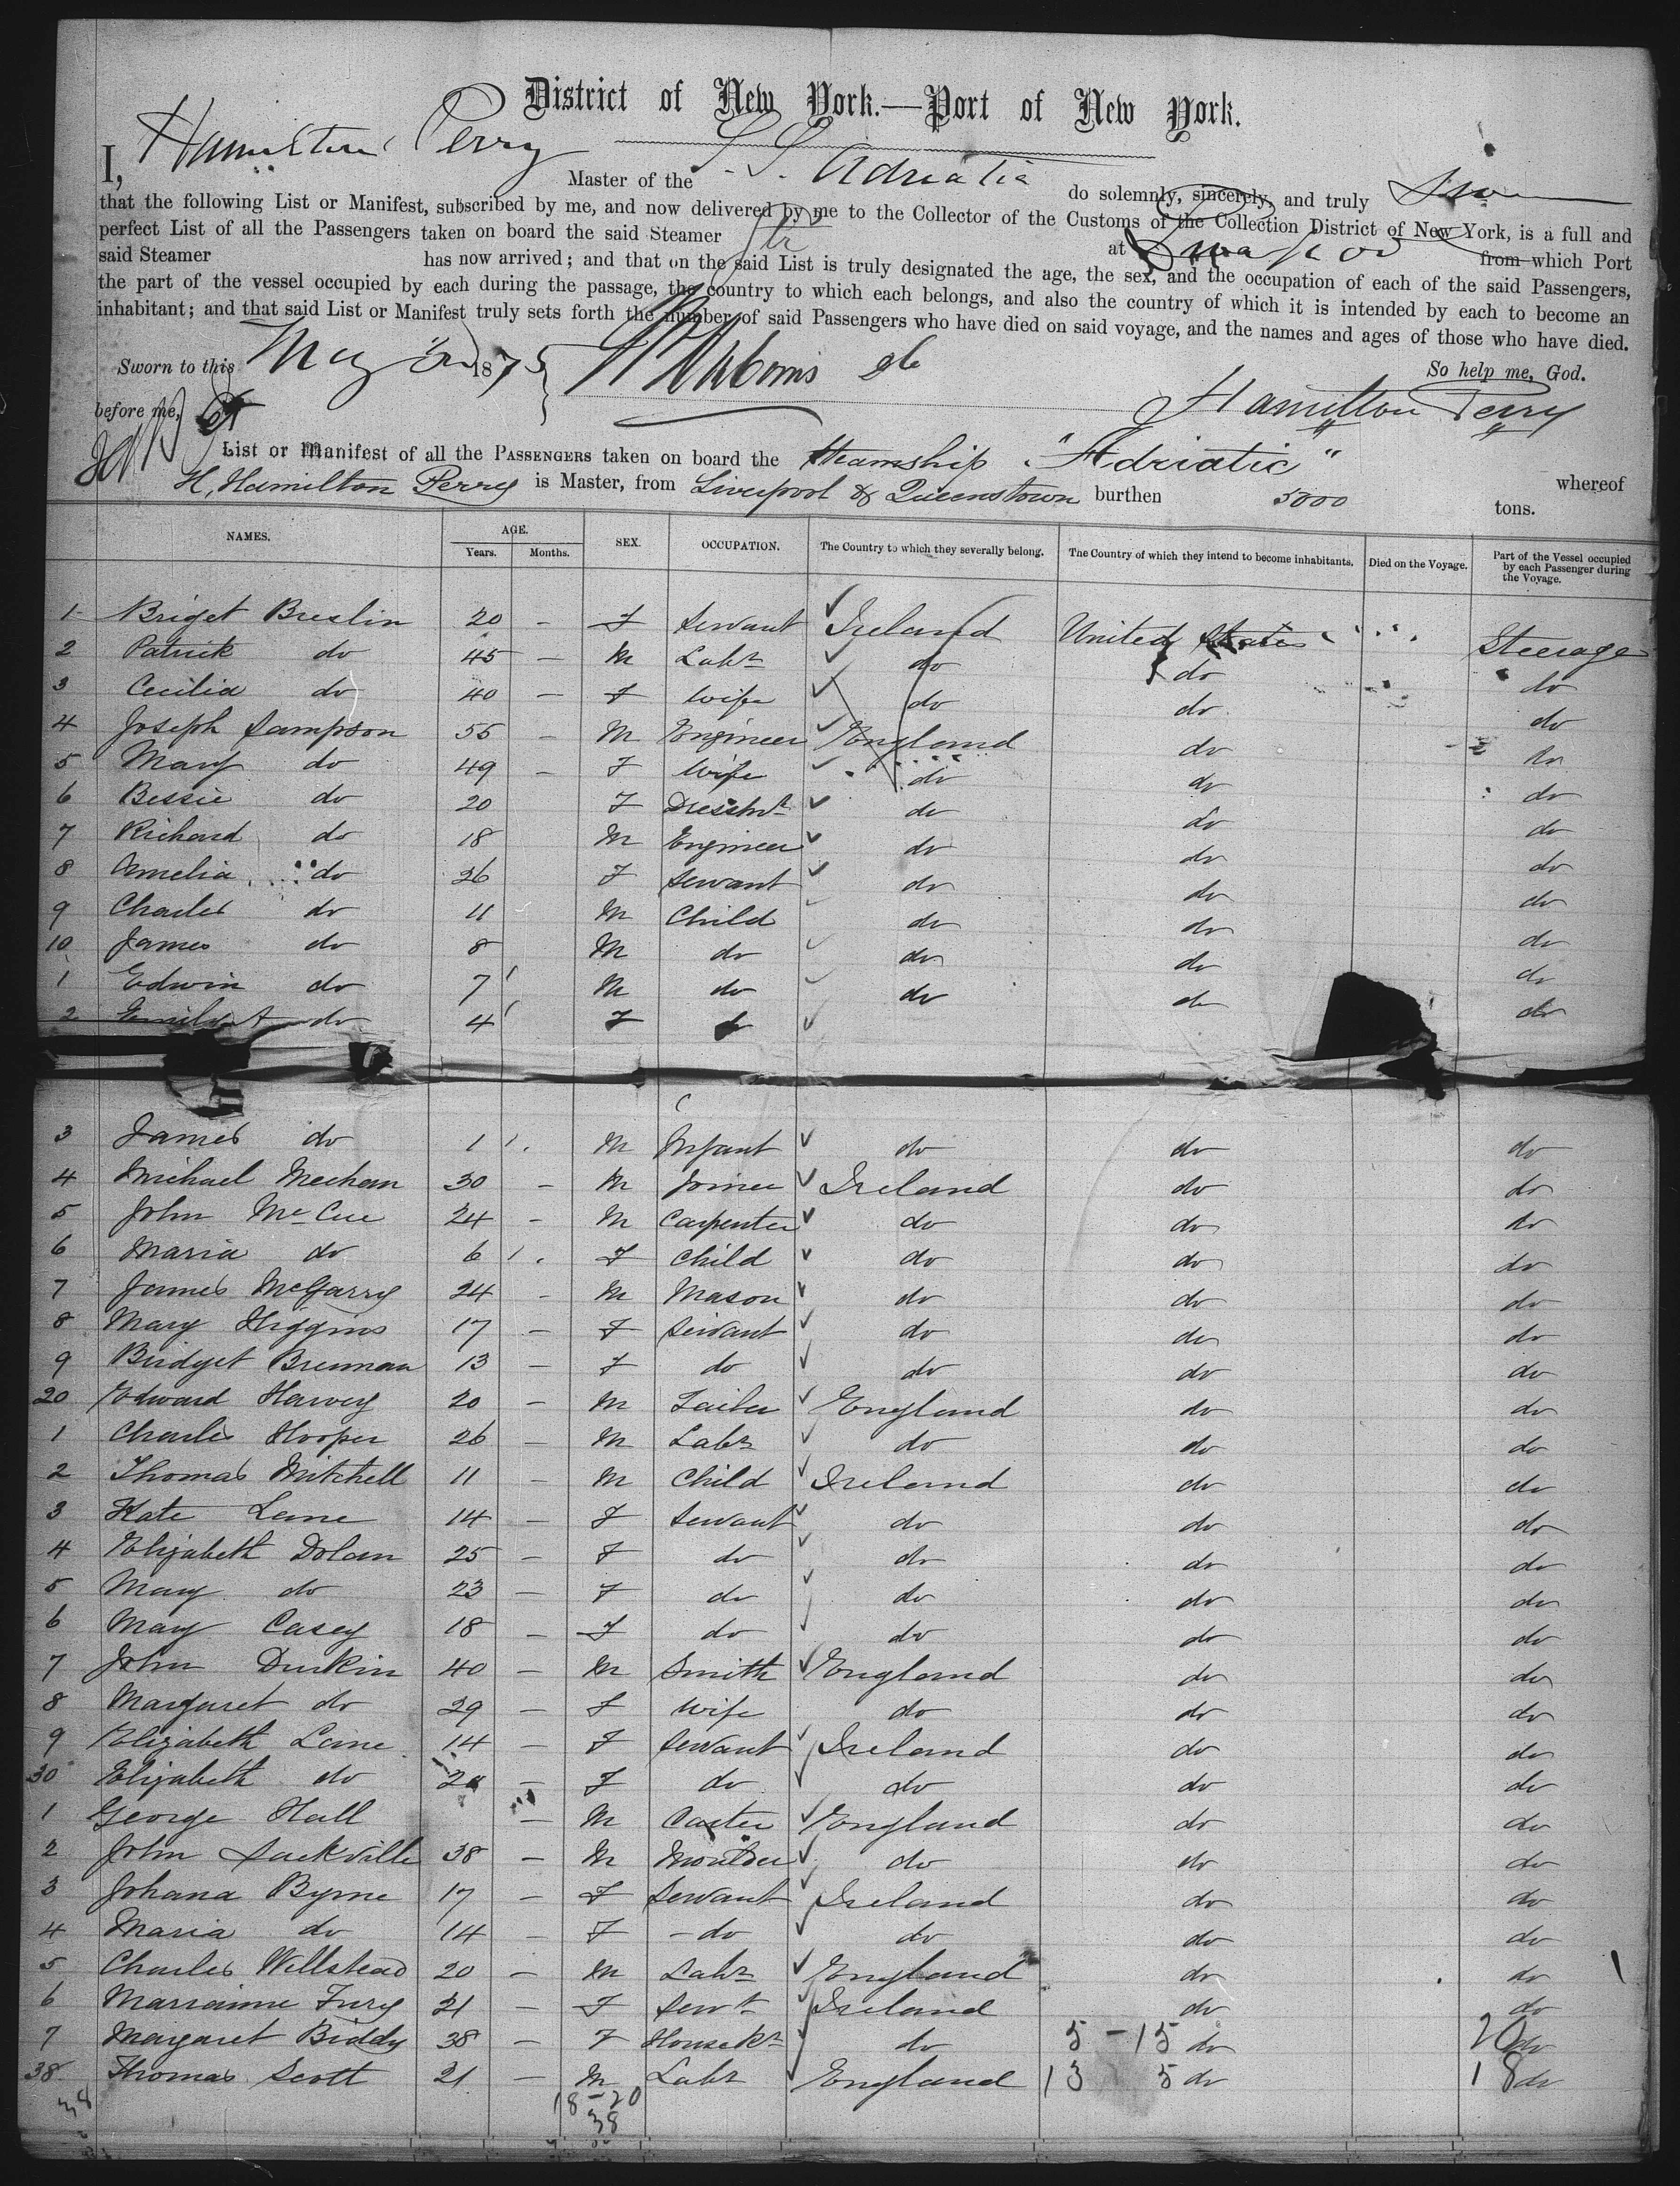 District of New York.—Port of New York.
I, Hamilton Perry Master of the S.S. Adriatic do solemnly, sincerely, and truly
that the following List or Manifest, subscribed by me, and now delivered by me to the Collector of the Customs of the Collection District of New York, is a full and
perfect List of all the Passengers taken on board the said Steamer at Liverpool from which Port
said Steamer has now arrived; and that on the said List is truly designated the age, the sex, and the occupation of each of the said Passengers,
the part of the vessel occupied by each during the passage, the country to which each belongs, and also the country of which it is intended by each to become an
inhabitant; and that said List or Manifest truly sets forth the number of said Passengers who have died on said voyage, and the names and ages of those who have died.
Sworn to this May 1875 So help me, God.
before me, Hamilton Perry
List or Manifest of all the PASSENGERS taken on board the Steamship "Adriatic" whereof
H. Hamilton Perry is Master, from Liverpool & Queenstown burthen 5000 tons.
NAMES. AGE. Years. Months. SEX. OCCUPATION. The Country to which they severally belong. The Country of which they intend to become inhabitants. Died on the Voyage. Part of the Vessel occupied by each Passenger during the Voyage.
1 Briget Breslin 20 - F Servant Ireland United States Steerage
2 Patrick do 45 - M Labr do do do
3 Cecilia do 40 - F Wife do do do
4 Joseph Sampson 55 - M Engineer England do do
5 Mary do 49 - F Wife do do do
6 Bessie do 20 F Dressmr do do do
7 Richard do 18 M Engineer do do do
8 Amelia do 26 F Servant do do do
9 Charles do 11 M Child do do do
10 James do 8 M do do do do
1 Edwin do 7 M do do do do
2 Emily A do 4 F do
3 James do 1 M Infant do do do
4 Michael Meehan 30 - M Joiner Ireland do do
5 John McCue 24 - M Carpenter do do do
6 Maria do 6 F Child do do do
7 James McGarry 24 - M Mason do do do
8 Mary Higgins 17 - F Servant do do do
9 Bridget Brennan 13 - F do do do do
20 Edward Harvey 20 - M Tailor England do do
1 Charles Hooper 26 - M Labr do do do
2 Thomas Mitchell 11 - M Child Ireland do do
3 Kate Lane 14 - F Servant do do do
4 Elizabeth Dolan 25 - F do do do do
5 Mary do 23 - F do do do do
6 Mary Casey 18 - F do do do do
7 John Durkin 40 - M Smith England do do
8 Margaret do 29 - F Wife do do do
9 Elizabeth Lane 14 - F Servant Ireland do do
30 Elizabeth do - F do do do do
1 George Hall - M Carter England do do
2 John Sackville 38 - M Moulder do do do
3 Johana Byrne 17 - F Servant Ireland do do
4 Maria do 14 - F - do do do do
5 Charles Willstead 20 - M Labr England do do
6 Marianne Fury 21 - F Servt Ireland do do
7 Margaret Biddy 38 - F Housekr do 5 - 15 do 20 do
38 Thomas Scott 21 - M Labr England 13 5 do 18 do
38 18 - 20
38